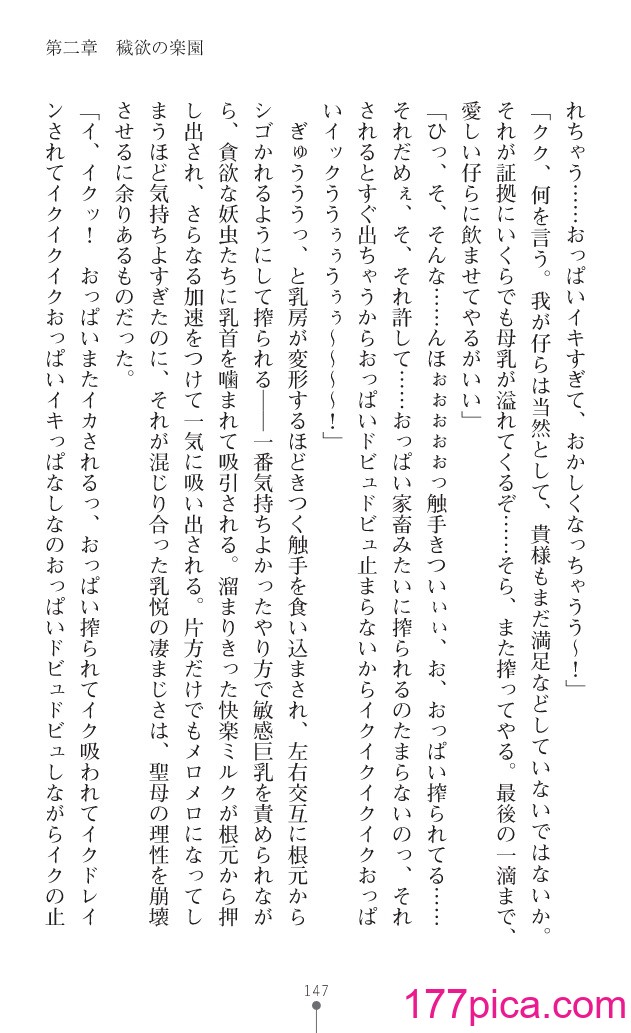 第二章　穢欲の楽園
れちゃう……おっぱいイキすぎて、おかしくなっちゃうう～！」
「クク、何を言う。我が仔らは当然として、貴様もまだ満足などしていないではないか。
それが証拠にいくらでも母乳が溢れてくるぞ……そら、また搾ってやる。最後の一滴まで、
愛しい仔らに飲ませてやるがいい」
「ひっ、そ、そんな……んほぉぉぉぉぉっ触手きついぃぃ、お、おっぱい搾られてる……
それだめぇ、そ、それ許して……おっぱい家畜みたいに搾られるのたまらないのっ、それ
されるとすぐ出ちゃうからおっぱいドビュドビュ止まらないからイクイクイクイクおっぱ
いイックううぅぅうぅぅ～～～～！」
　ぎゅうううっ、と乳房が変形するほどきつく触手を食い込まされ、左右交互に根元から
シゴかれるようにして搾られる――一番気持ちよかったやり方で敏感巨乳を責められなが
ら、貪欲な妖虫たちに乳首を噛まれて吸引される。溜まりきった快楽ミルクが根元から押
し出され、さらなる加速をつけて一気に吸い出される。片方だけでもメロメロになってし
まうほど気持ちよすぎたのに、それが混じり合った乳悦の凄まじさは、聖母の理性を崩壊
させるに余りあるものだった。
「イ、イクッ！　おっぱいまたイカされるっ、おっぱい搾られてイク吸われてイクドレイ
ンされてイクイクイクおっぱいイキっぱなしなのおっぱいドビュドビュしながらイクの止
147
177pica.com